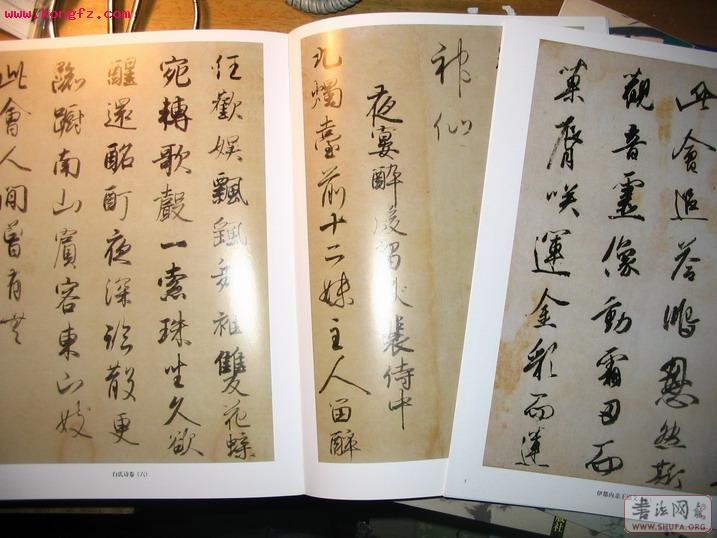 www.kongfz.com
此會追荅鴻恩然斯
觀音靈像動霜而
菓脣咲運金彩而蓮
神仙
夜宴醉後留獻裴侍中
九燭臺前十二姝主人留醉
任歡娱飄飄舞袖雙花蝶
宛轉歌聲一索珠坐久欲
醒還酩酊夜深初散更
踟蹰南山賓客東山妓
此會人間曾有无
白氏诗卷（六）
伊都内亲王愿文
书法网
WWW.SHUFA.ORG